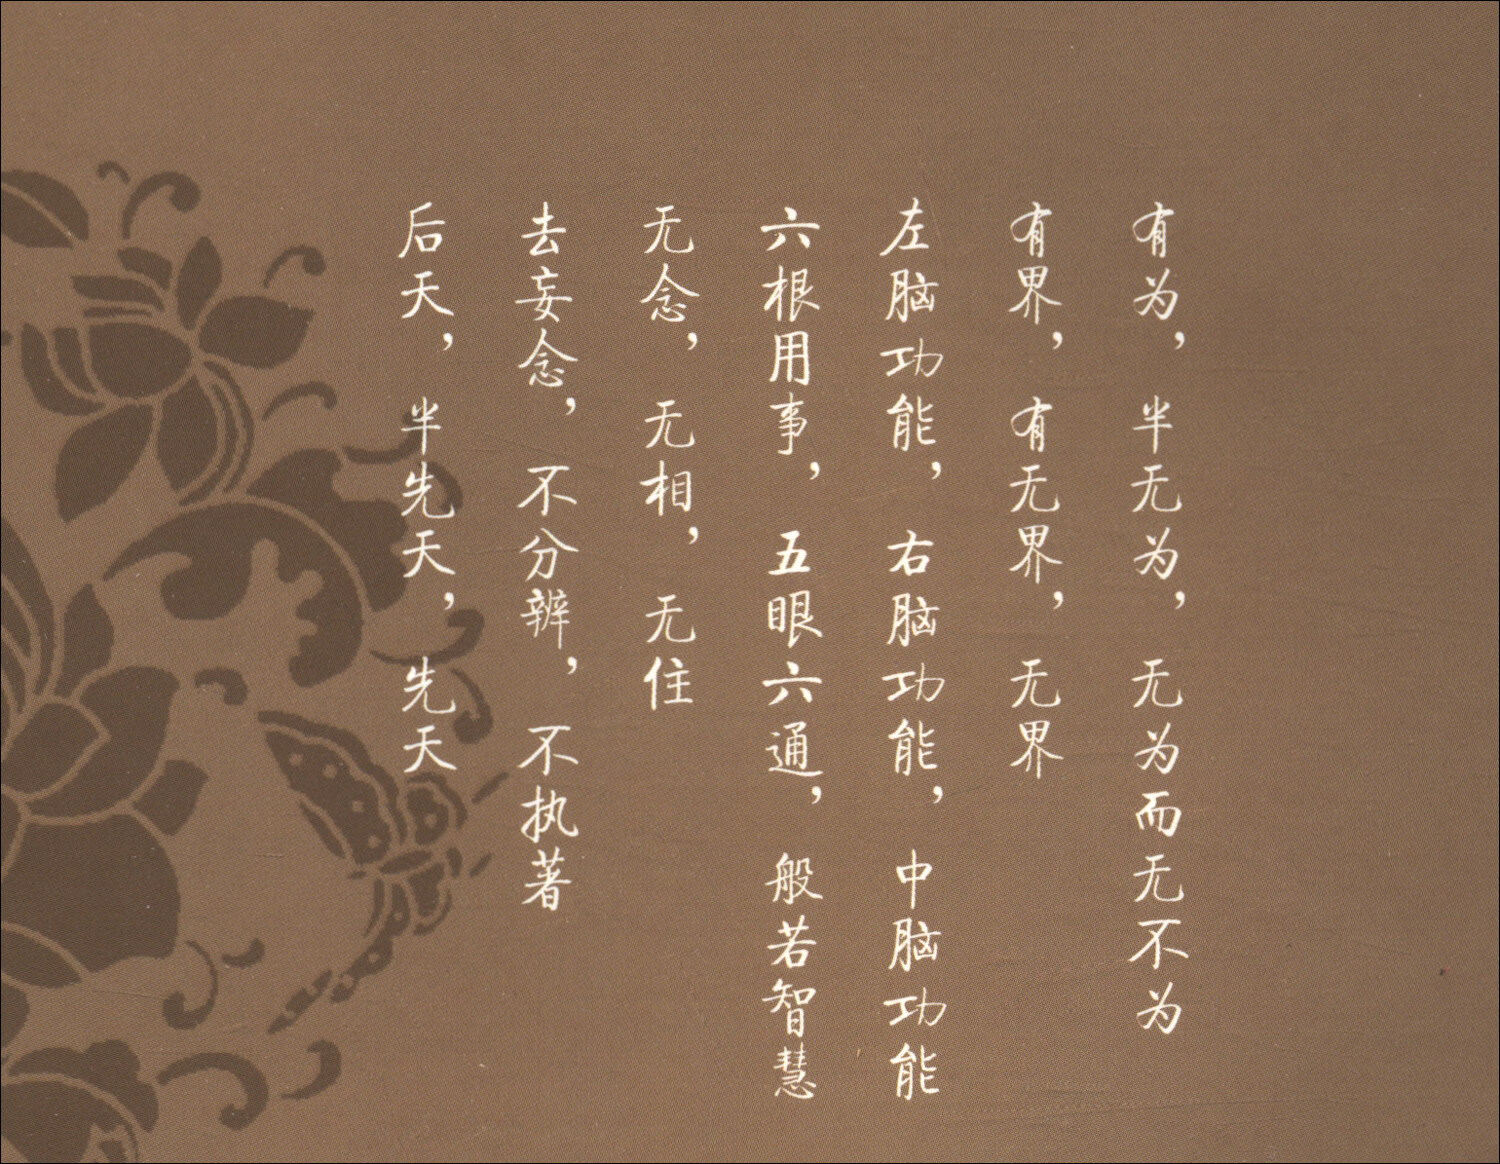 有为，半无为，无为而无不为
有界，有无界，无界
左脑功能，右脑功能，中脑功能
六根用事，五眼六通，般若智慧
无念，无相，无住
去妄念，不分辨，不执著
后天，半先天，先天